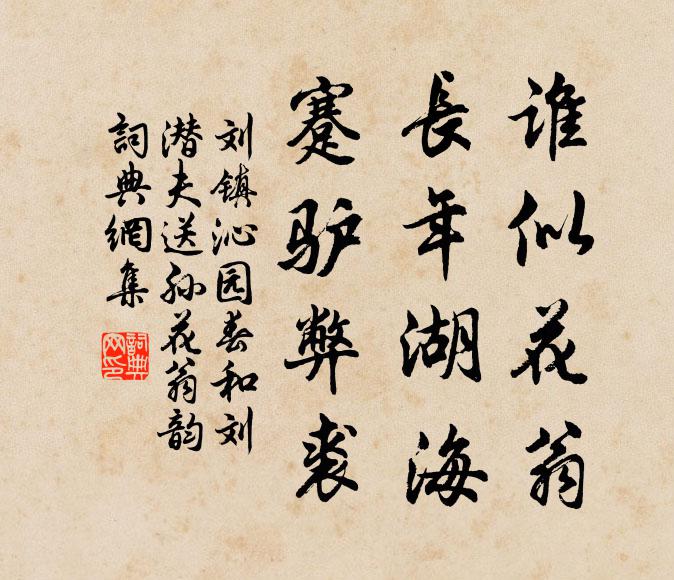 谁似花翁
長年湖海
蹇驴弊裘
刘镇沁园春和刘
潜夫送孙花翁韵
詞典網集
詞典网印